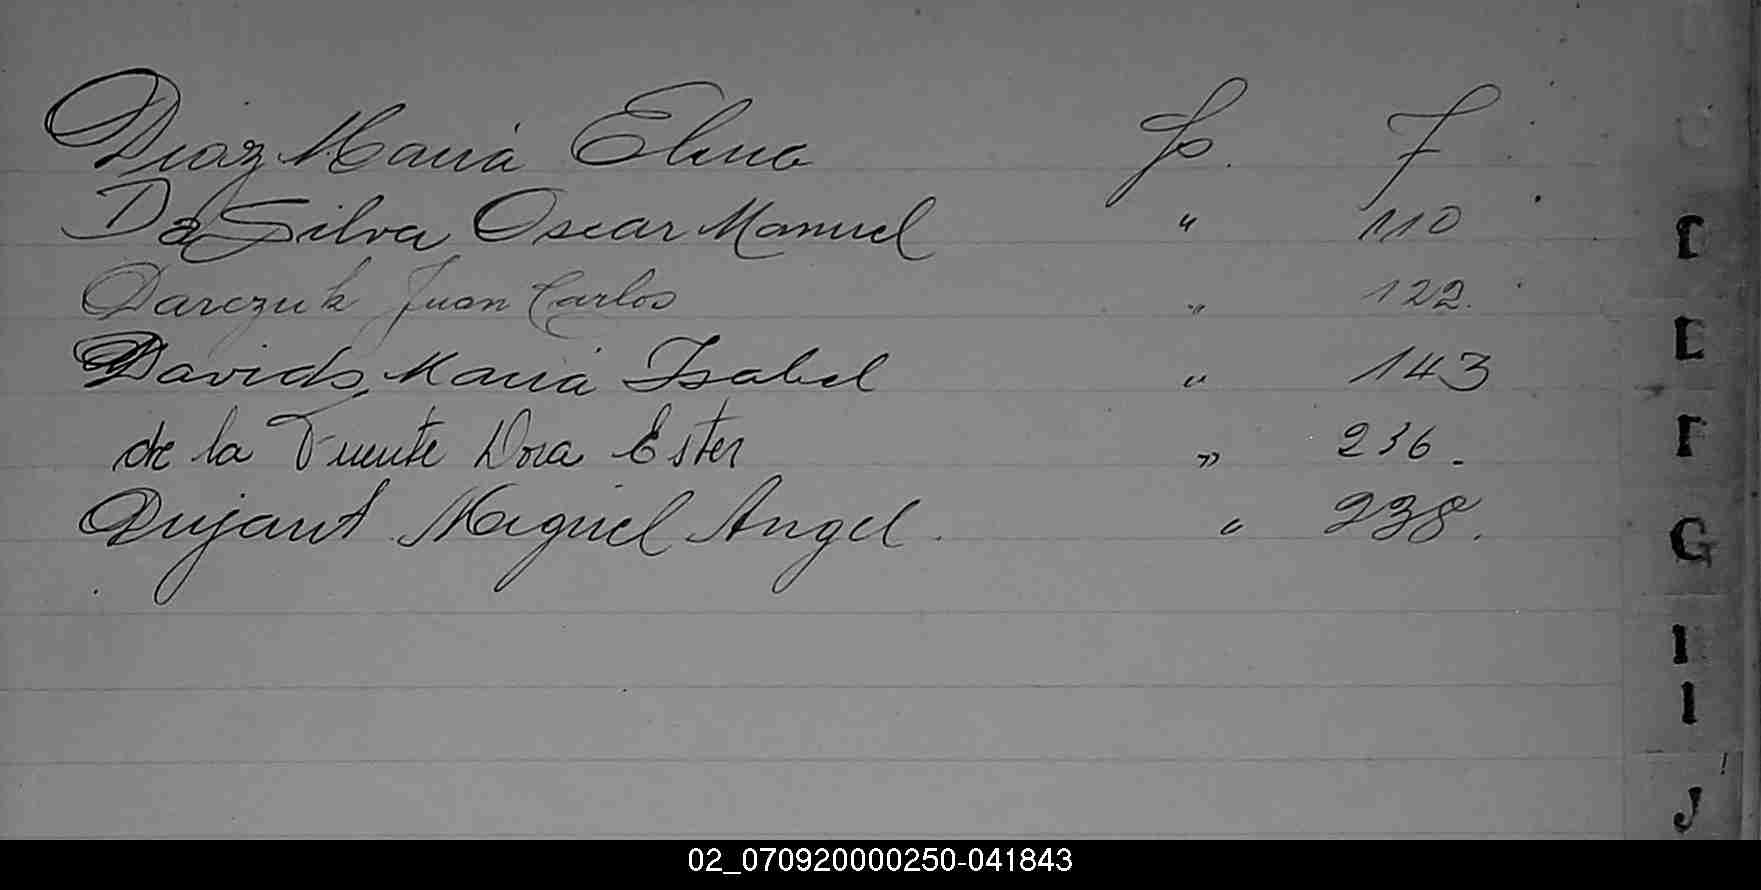 Diaz Maria Elena fo. 7
Da Silva Oscar Manuel " 110
Darczuk Juan Carlos " 122.
Davids Maria Isabel " 143
de la Fuente Dora Ester " 236.
Dujant Miguel Angel. " 238.
G
J
02_070920000250-041843